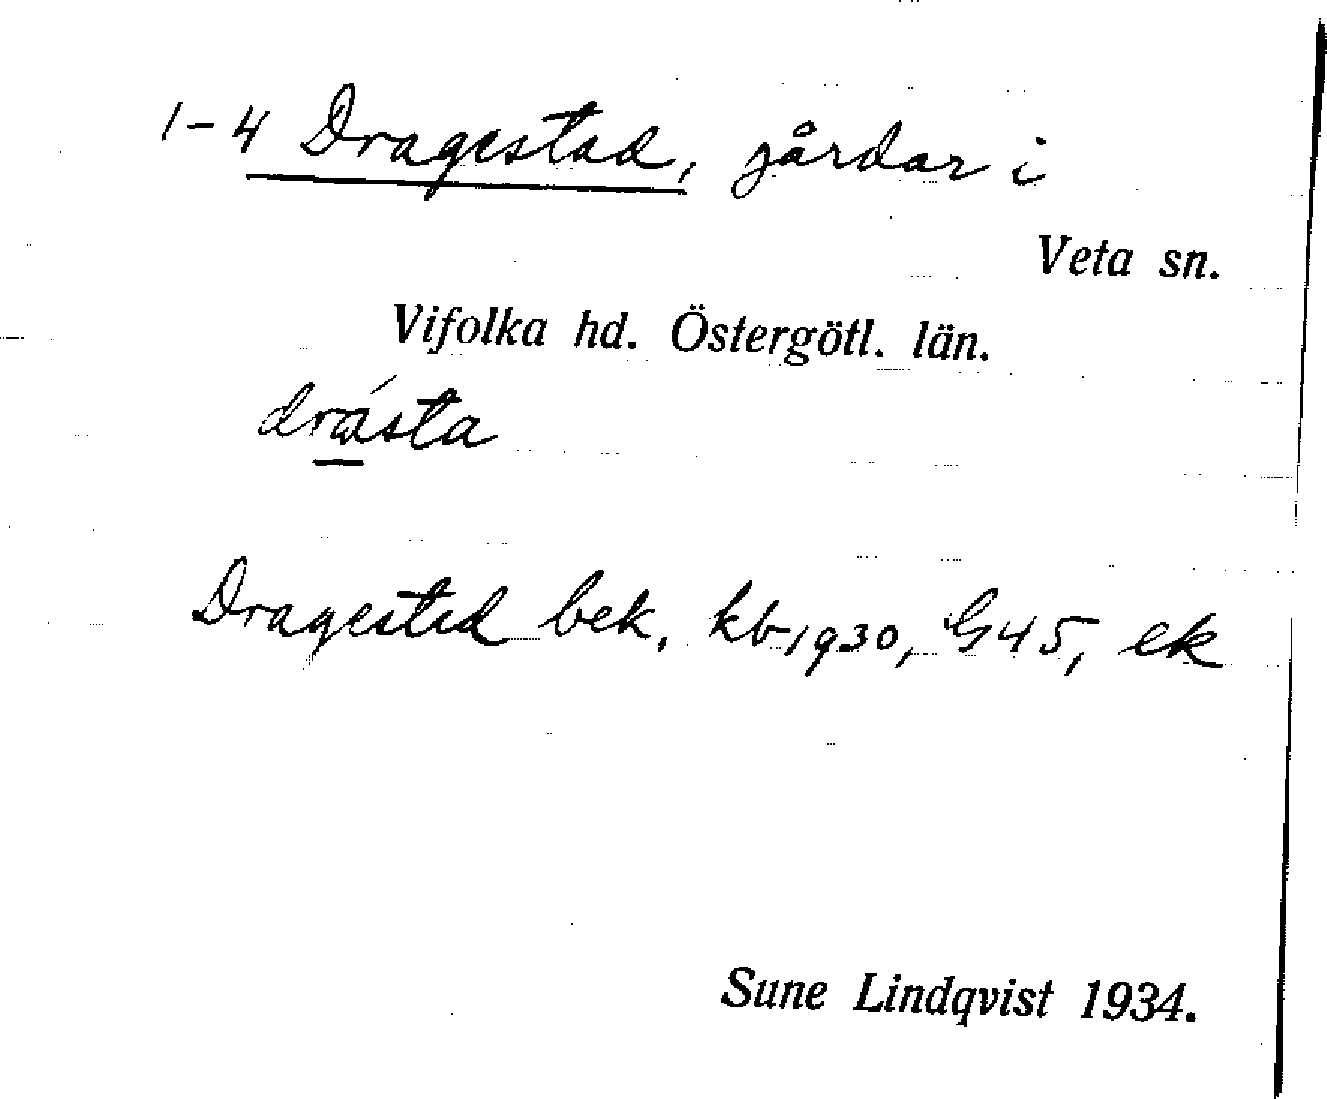 1-4 Dragestad, gårdar i
Veta sn.
Vifolka hd. Östergötl. län.
drásta
Dragestad bek. kb 1930, G45, ek
Sune Lindqvist 1934.